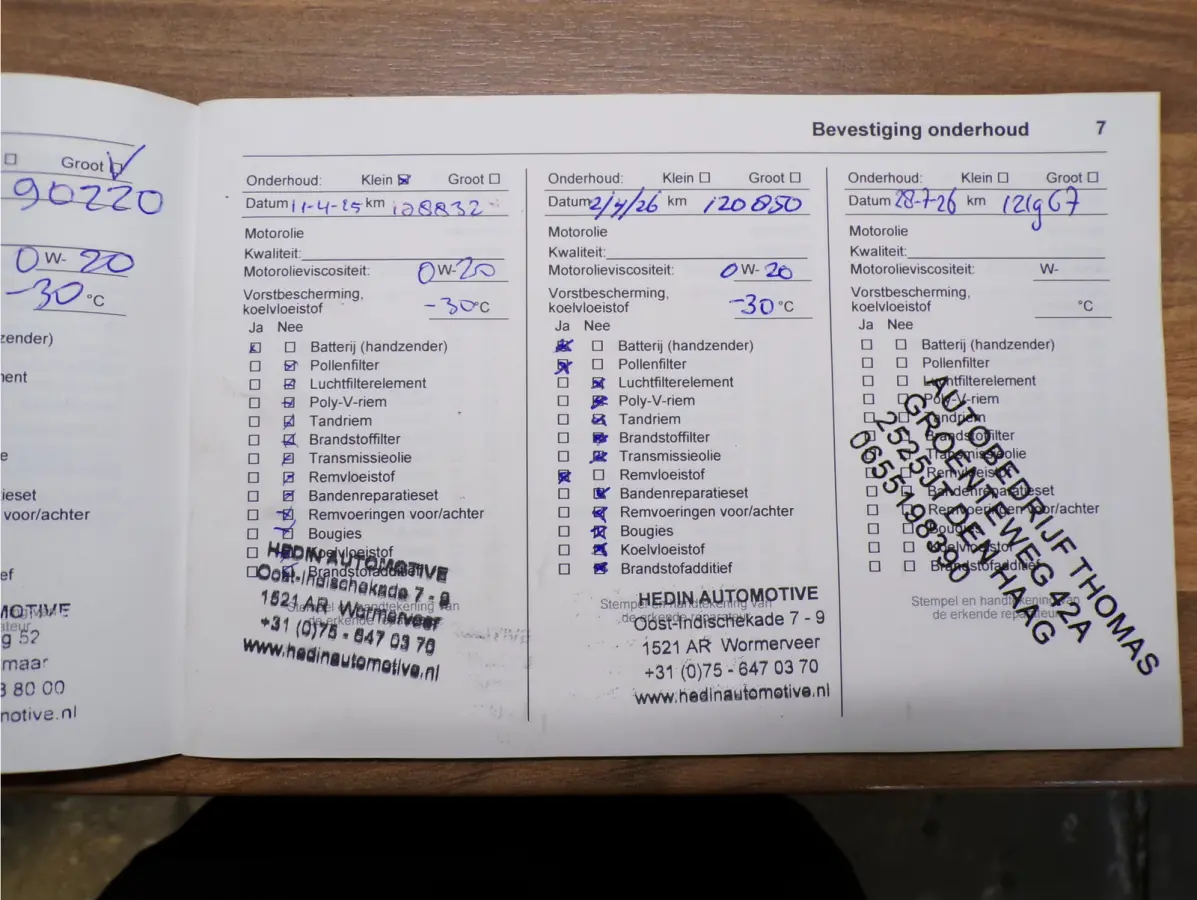 Groot
90220
0 W- 20
-30 °C
zender)
ent
e
ieset
voor/achter
ef
MOTIVE
g 52
maar
8 80 00
motive.nl
Bevestiging onderhoud 7
Onderhoud: Klein Groot
Datum 11-4-25 km 108832
Motorolie
Kwaliteit:
Motorolieviscositeit: 0 W- 20
Vorstbescherming,
koelvloeistof -30 °C
Ja Nee
Batterij (handzender)
Pollenfilter
Luchtfilterelement
Poly-V-riem
Tandriem
Brandstoffilter
Transmissieolie
Remvloeistof
Bandenreparatieset
Remvoeringen voor/achter
Bougies
Koelvloeistof
Brandstofadditief
Stempel en handtekening van
de erkende reparateur
HEDIN AUTOMOTIVE
Oost-Indischekade 7 - 9
1521 AR Wormerveer
+31 (0)75 - 647 03 70
www.hedinautomotive.nl
Onderhoud: Klein Groot
Datum 2/4/26 km 120850
Motorolie
Kwaliteit:
Motorolieviscositeit: 0 W- 20
Vorstbescherming,
koelvloeistof -30 °C
Ja Nee
Batterij (handzender)
Pollenfilter
Luchtfilterelement
Poly-V-riem
Tandriem
Brandstoffilter
Transmissieolie
Remvloeistof
Bandenreparatieset
Remvoeringen voor/achter
Bougies
Koelvloeistof
Brandstofadditief
Stempel en handtekening van
de erkende reparateur
HEDIN AUTOMOTIVE
Oost-Indischekade 7 - 9
1521 AR Wormerveer
+31 (0)75 - 647 03 70
www.hedinautomotive.nl
Onderhoud: Klein Groot
Datum 28-7-26 km 121967
Motorolie
Kwaliteit:
Motorolieviscositeit: W-
Vorstbescherming,
koelvloeistof °C
Ja Nee
Batterij (handzender)
Pollenfilter
Luchtfilterelement
Poly-V-riem
Tandriem
Brandstoffilter
Transmissieolie
Remvloeistof
Bandenreparatieset
Remvoeringen voor/achter
Bougies
Koelvloeistof
Brandstofadditief
Stempel en handtekening van
de erkende reparateur
AUTOBEDRIJF THOMAS
GROENTEWEG 42A
2525JT DEN HAAG
0655198390